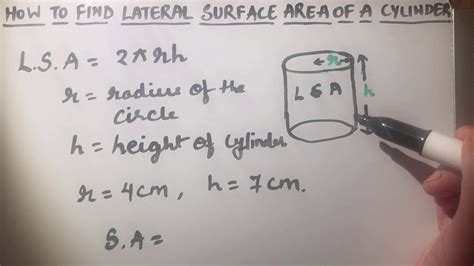 HOW TO FIND LATERAL SURFACE AREA OF A CYLINDER
L.S.A = 2πrh
r = radius of the circle
h = height of cylinder
r = 4cm, h = 7cm.
S.A =
r
L S A
h